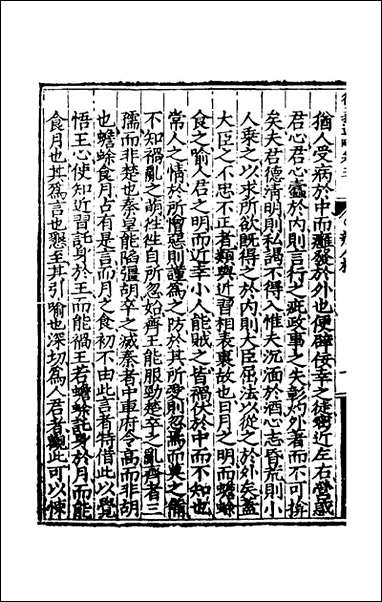 猶人受病於中而癰發於外也便辟佞幸之徒密近左右營惑
君心君心蠱於內則言行之疵政事之失彰灼外著而不可揜
矣夫君德清明則私謁不得入惟夫沉湎於酒心志昏荒則小
人乘之以求所欲既得之於內則大臣屈法以從之於外矣盖
大臣之不忠不正者類與近習相表裏故也日月之明而蟾蜍
食之喻人君之明而近幸小人能賊之皆禍伏於中而不知也
常人之情於所憎惡則謹爲之防於其所愛則忽焉而莫之備
不知禍亂之萌徃徃自所忽始齊王能服勁楚卒之亂齊者三
孺而非楚也秦皇能陷彊胡卒之滅秦者中車府令高而非胡
也蟾蜍食月占有是言而月之食初不由此言者特借此以覺
悟王心使知近習託身於王而能禍王若蟾蜍託身於月而能
食月也其爲言也懇至其引喻也深切爲人君者觀此可以悚